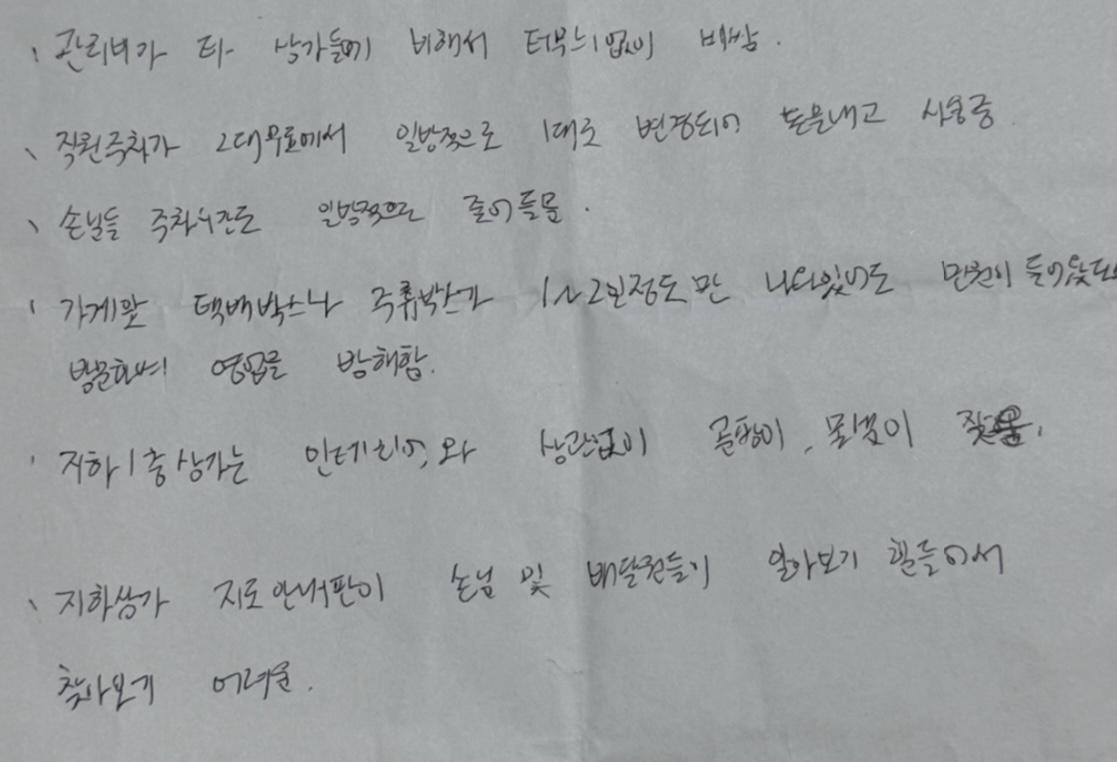 、관리비가 타 상가들에 비해서 터무니없이 비쌈.
、직원주차가 2대무료에서 일방적으로 1대로 변경되어 돈을내고 사용중.
、손님들 주차시간도 일방적으로 줄어듬.
、가게앞 택배박스나 주류박스가 1~2인정도만 나와있어도 민원이 들어왔다
방문하여 영업을 방해함.
、지하1층상가는 인테리어와 상관없이 곰팡이, 물샘이 잦음.
、지하상가 지도안내판이 손님 및 배달원들이 알아보기 힘들어서
찾아보기 어려움.